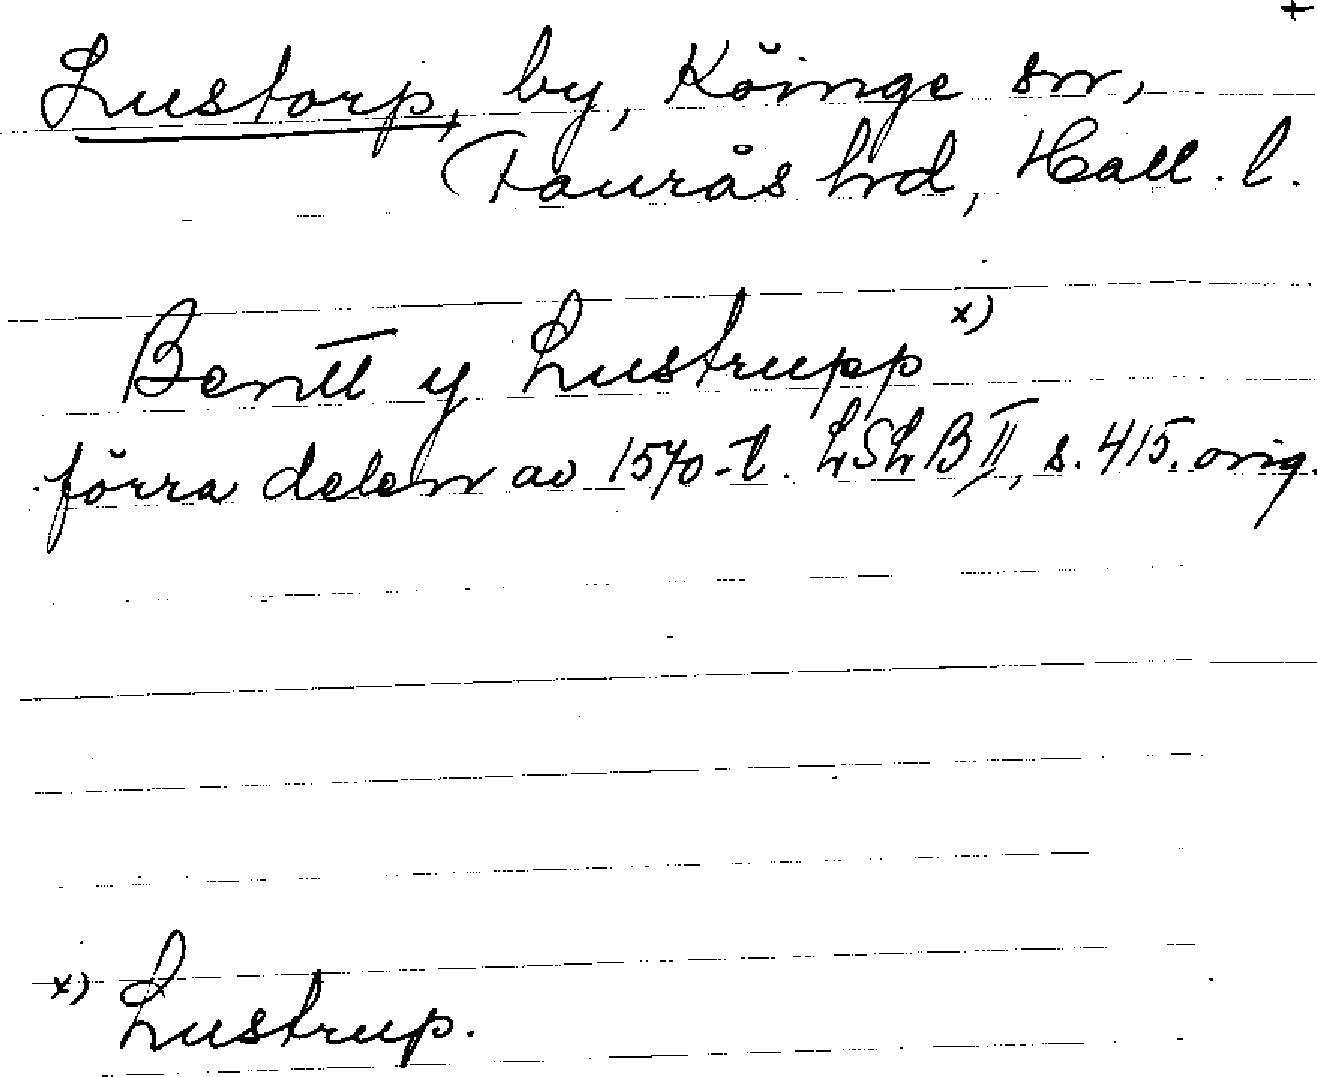 +
Lustorp, by, Köinge sn,
Faurås hrd, Hall. l.
Bentt y Lustrupp x)
förra delen av 1570-t. LSLB II, s. 415. orig.
x) Lustrup.